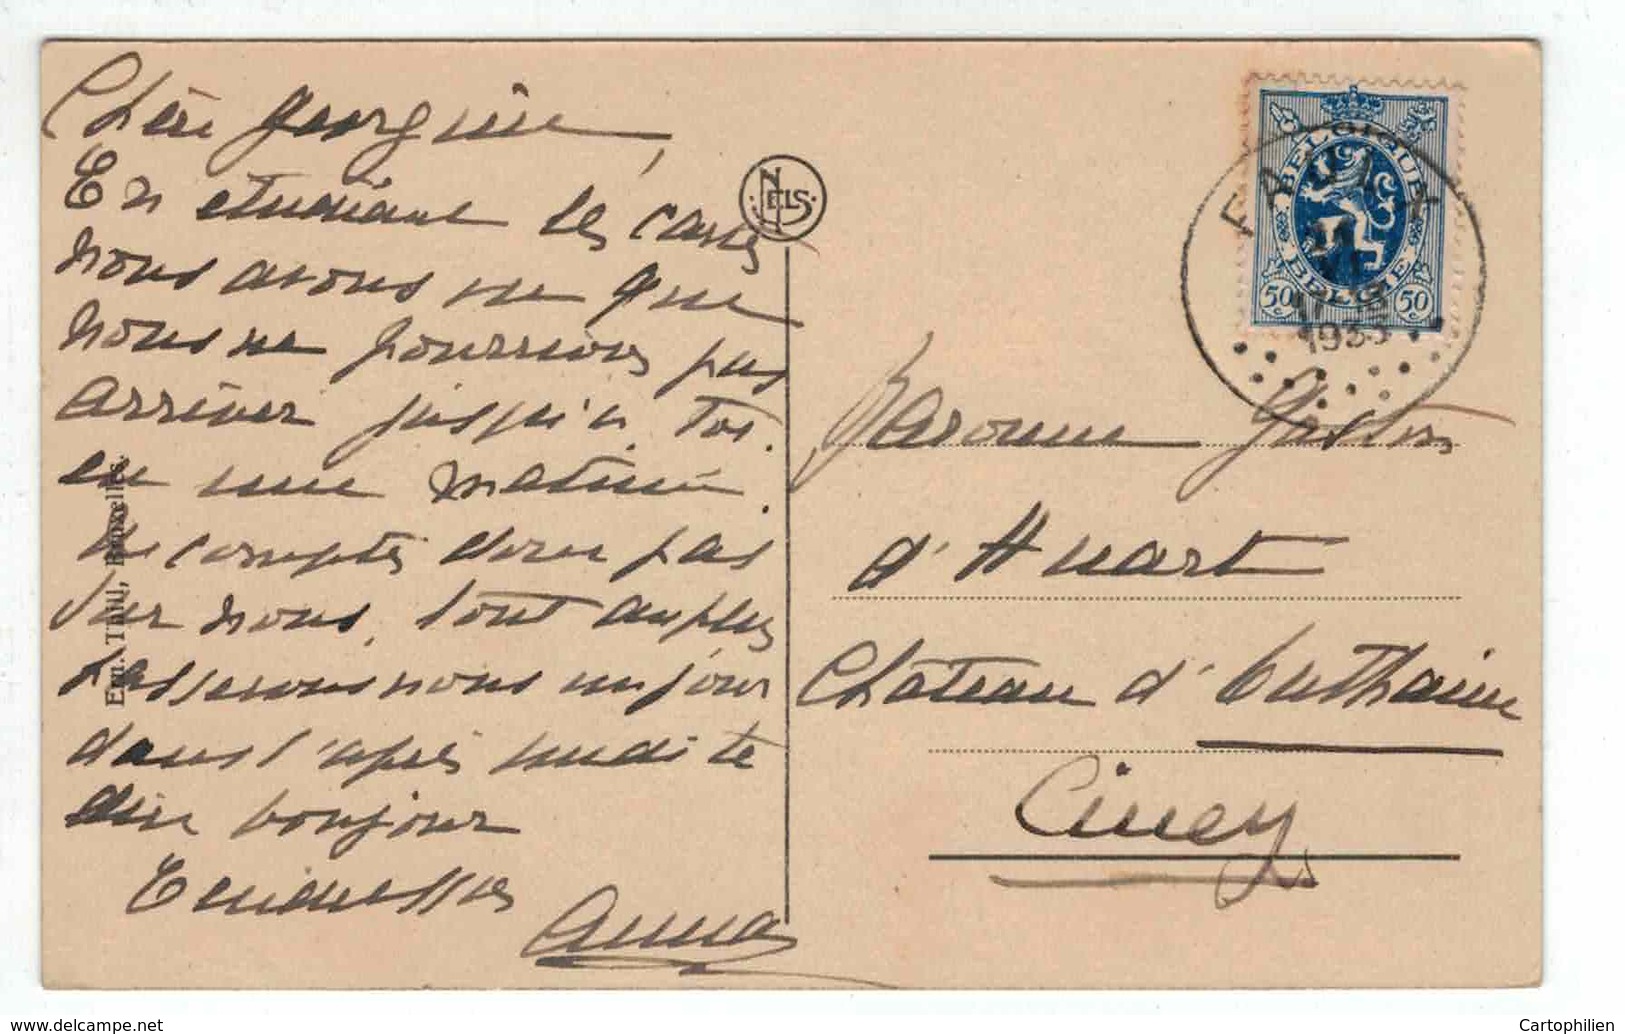 Chère Georgine,
En étudiant les cartes
nous avons vu que
nous ne pourrions pas
arriver jusqu'à Toi
en une matinée.
Ne comptes donc pas
sur nous, tout au plus
passerons nous un jour
dans l'après midi te
dire bonjour
Tendresses
Anna
NELS
Em. Thill, Bruxelles.
BELGIQUE
BELGIE
50c 50c
FAULX
1933
Baronne Gaston
d'Huart
Château d'
Ciney
Cartophilien